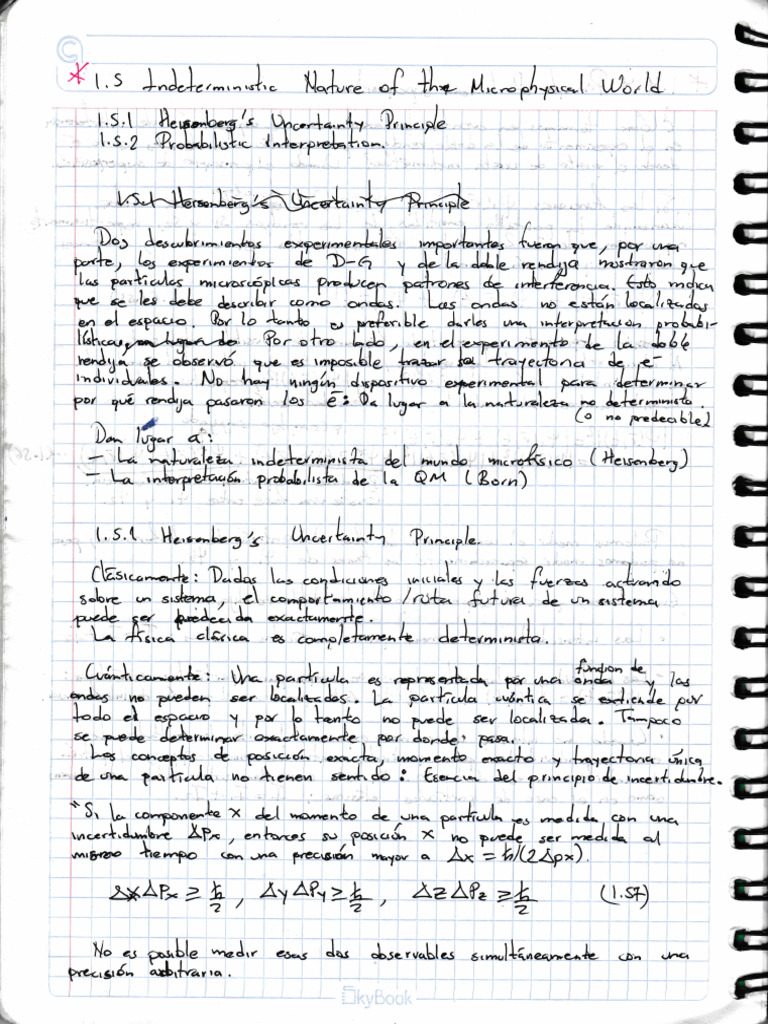 * 1.5 Indeterministic Nature of the Microphysical World
1.5.1 Heisenberg's Uncertainty Principle
1.5.2 Probabilistic Interpretation.
1.5.1 Heisenberg's Uncertainty Principle
Dos descubrimientos experimentales importantes fueron que, por una
parte, los experimientos de D-G y de la doble rendija mostraron que
las partículas microscópicas producen patrones de interferencia. Esto indica
que se les debe describir como ondas. Las ondas no están localizadas
en el espacio. Por lo tanto es preferible darles una interpretación probabi-
lística, en lugar de Por otro lado, en el experimento de la doble
rendija se observó que es imposible trazar la trayectoria de e⁻
individuales. No hay ningún dispositivo experimental para determinar
por qué rendija pasaron los e⁻: Da lugar a la naturaleza no determinista.
(o no predecible)
Dan lugar a:
- La naturaleza indeterminista del mundo microfísico (Heisenberg)
- La interpretación probabilista de la QM (Born)
1.5.1 Heisenberg's Uncertainty Principle.
Clásicamente: Dadas las condiciones iniciales y las fuerzas actuando
sobre un sistema, el comportamiento /ruta futura de un sistema
puede ser predecida exactamente.
La física clárica es completamente determinista.
Cuánticamente: Una partícula es representada por una función de onda y las
ondas no pueden ser localizadas. La partícula cuántica se extiende por
todo el espacio y por lo tanto no puede ser localizada. Tampoco
se puede determinar exactamente por donde pasa.
Los conceptos de posición exacta, momento exacto y trayectoria única
de una partícula no tienen sentido: Esencia del principio de incertidumbre.
*Si la componente x del momento de una partícula es medida con una
incertidumbre ΔPx, entonces su posición x no puede ser medida al
mismo tiempo con una precisión mayor a Δx = ħ/(2Δpx).
ΔxΔPx ≥ ħ/2, ΔyΔPy ≥ ħ/2, ΔzΔPz ≥ ħ/2 (1.57)
No es posible medir esas dos observables simultáneamente con una
precisión arbitraria.
SkyBook